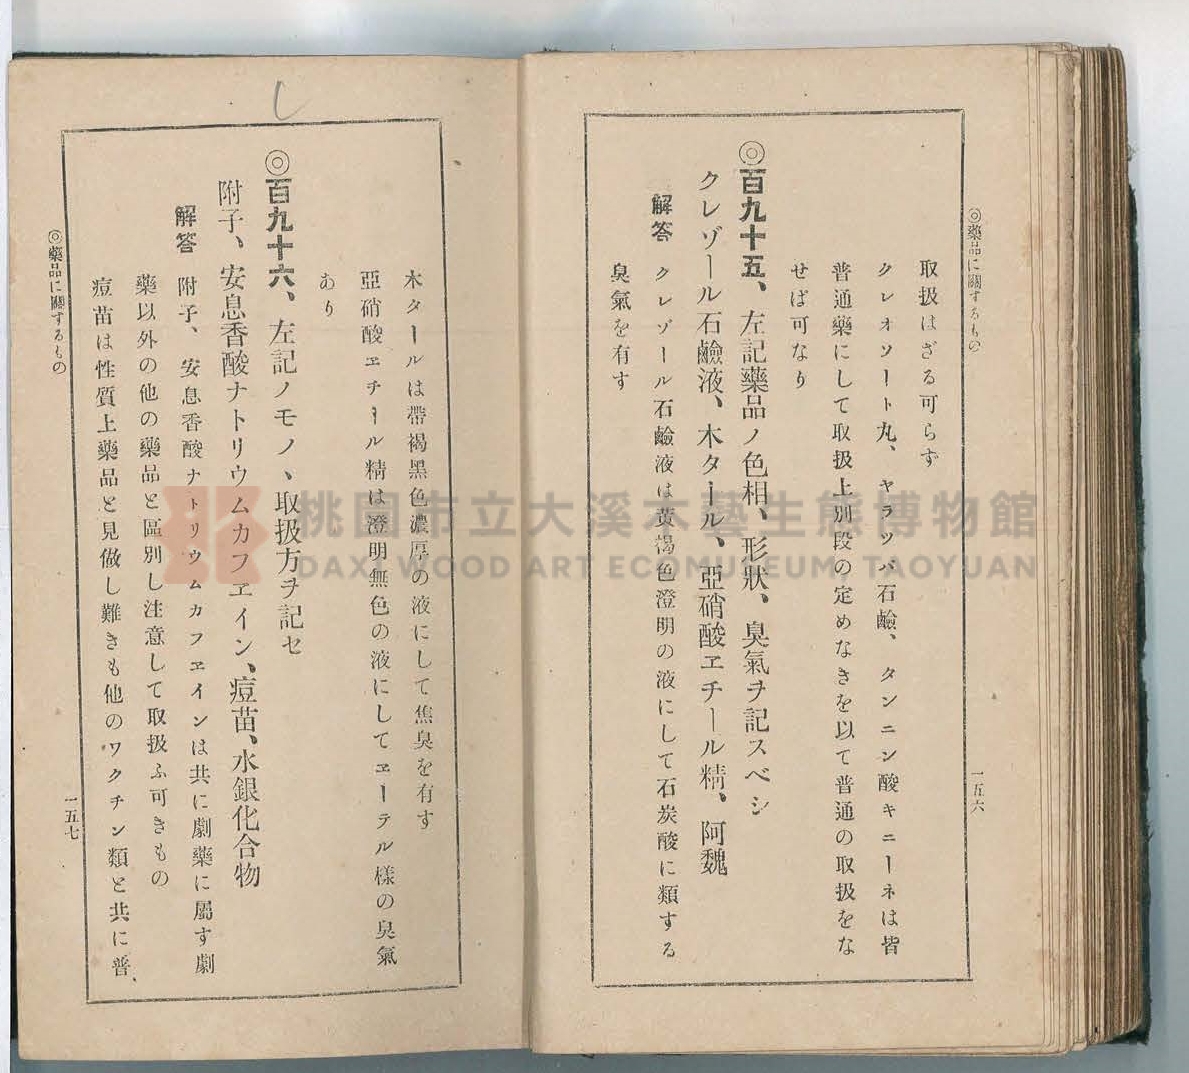 ◎藥品に關するもの
取扱はざる可らず
クレオソート丸、ヤラツパ石鹼、タンニン酸キニーネは皆
普通藥にして取扱上別段の定めなきを以て普通の取扱をな
せば可なり
◎百九十五、左記藥品ノ色相、形狀、臭氣ヲ記スベシ
クレゾール石鹼液、木タール、亞硝酸ヱチール精、阿魏
解答 クレゾール石鹼液は黄褐色澄明の液にして石炭酸に類する
臭氣を有す
一五六
木タールは帶褐黑色濃厚の液にして焦臭を有す
亞硝酸ヱチール精は澄明無色の液にしてヱーテル樣の臭氣
あり
◎百九十六、左記ノモノヽ取扱方ヲ記セ
附子、安息香酸ナトリウムカフヱイン、痘苗、水銀化合物
解答 附子、安息香酸ナトリウムカフヱインは共に劇藥に屬す劇
藥以外の他の藥品と區別し注意して取扱ふ可きもの
痘苗は性質上藥品と見做し難きも他のワクチン類と共に普
◎藥品に關するもの
一五七
桃園市立大溪木藝生態博物館
DAXI WOOD ART ECOMUSEUM, TAOYUAN